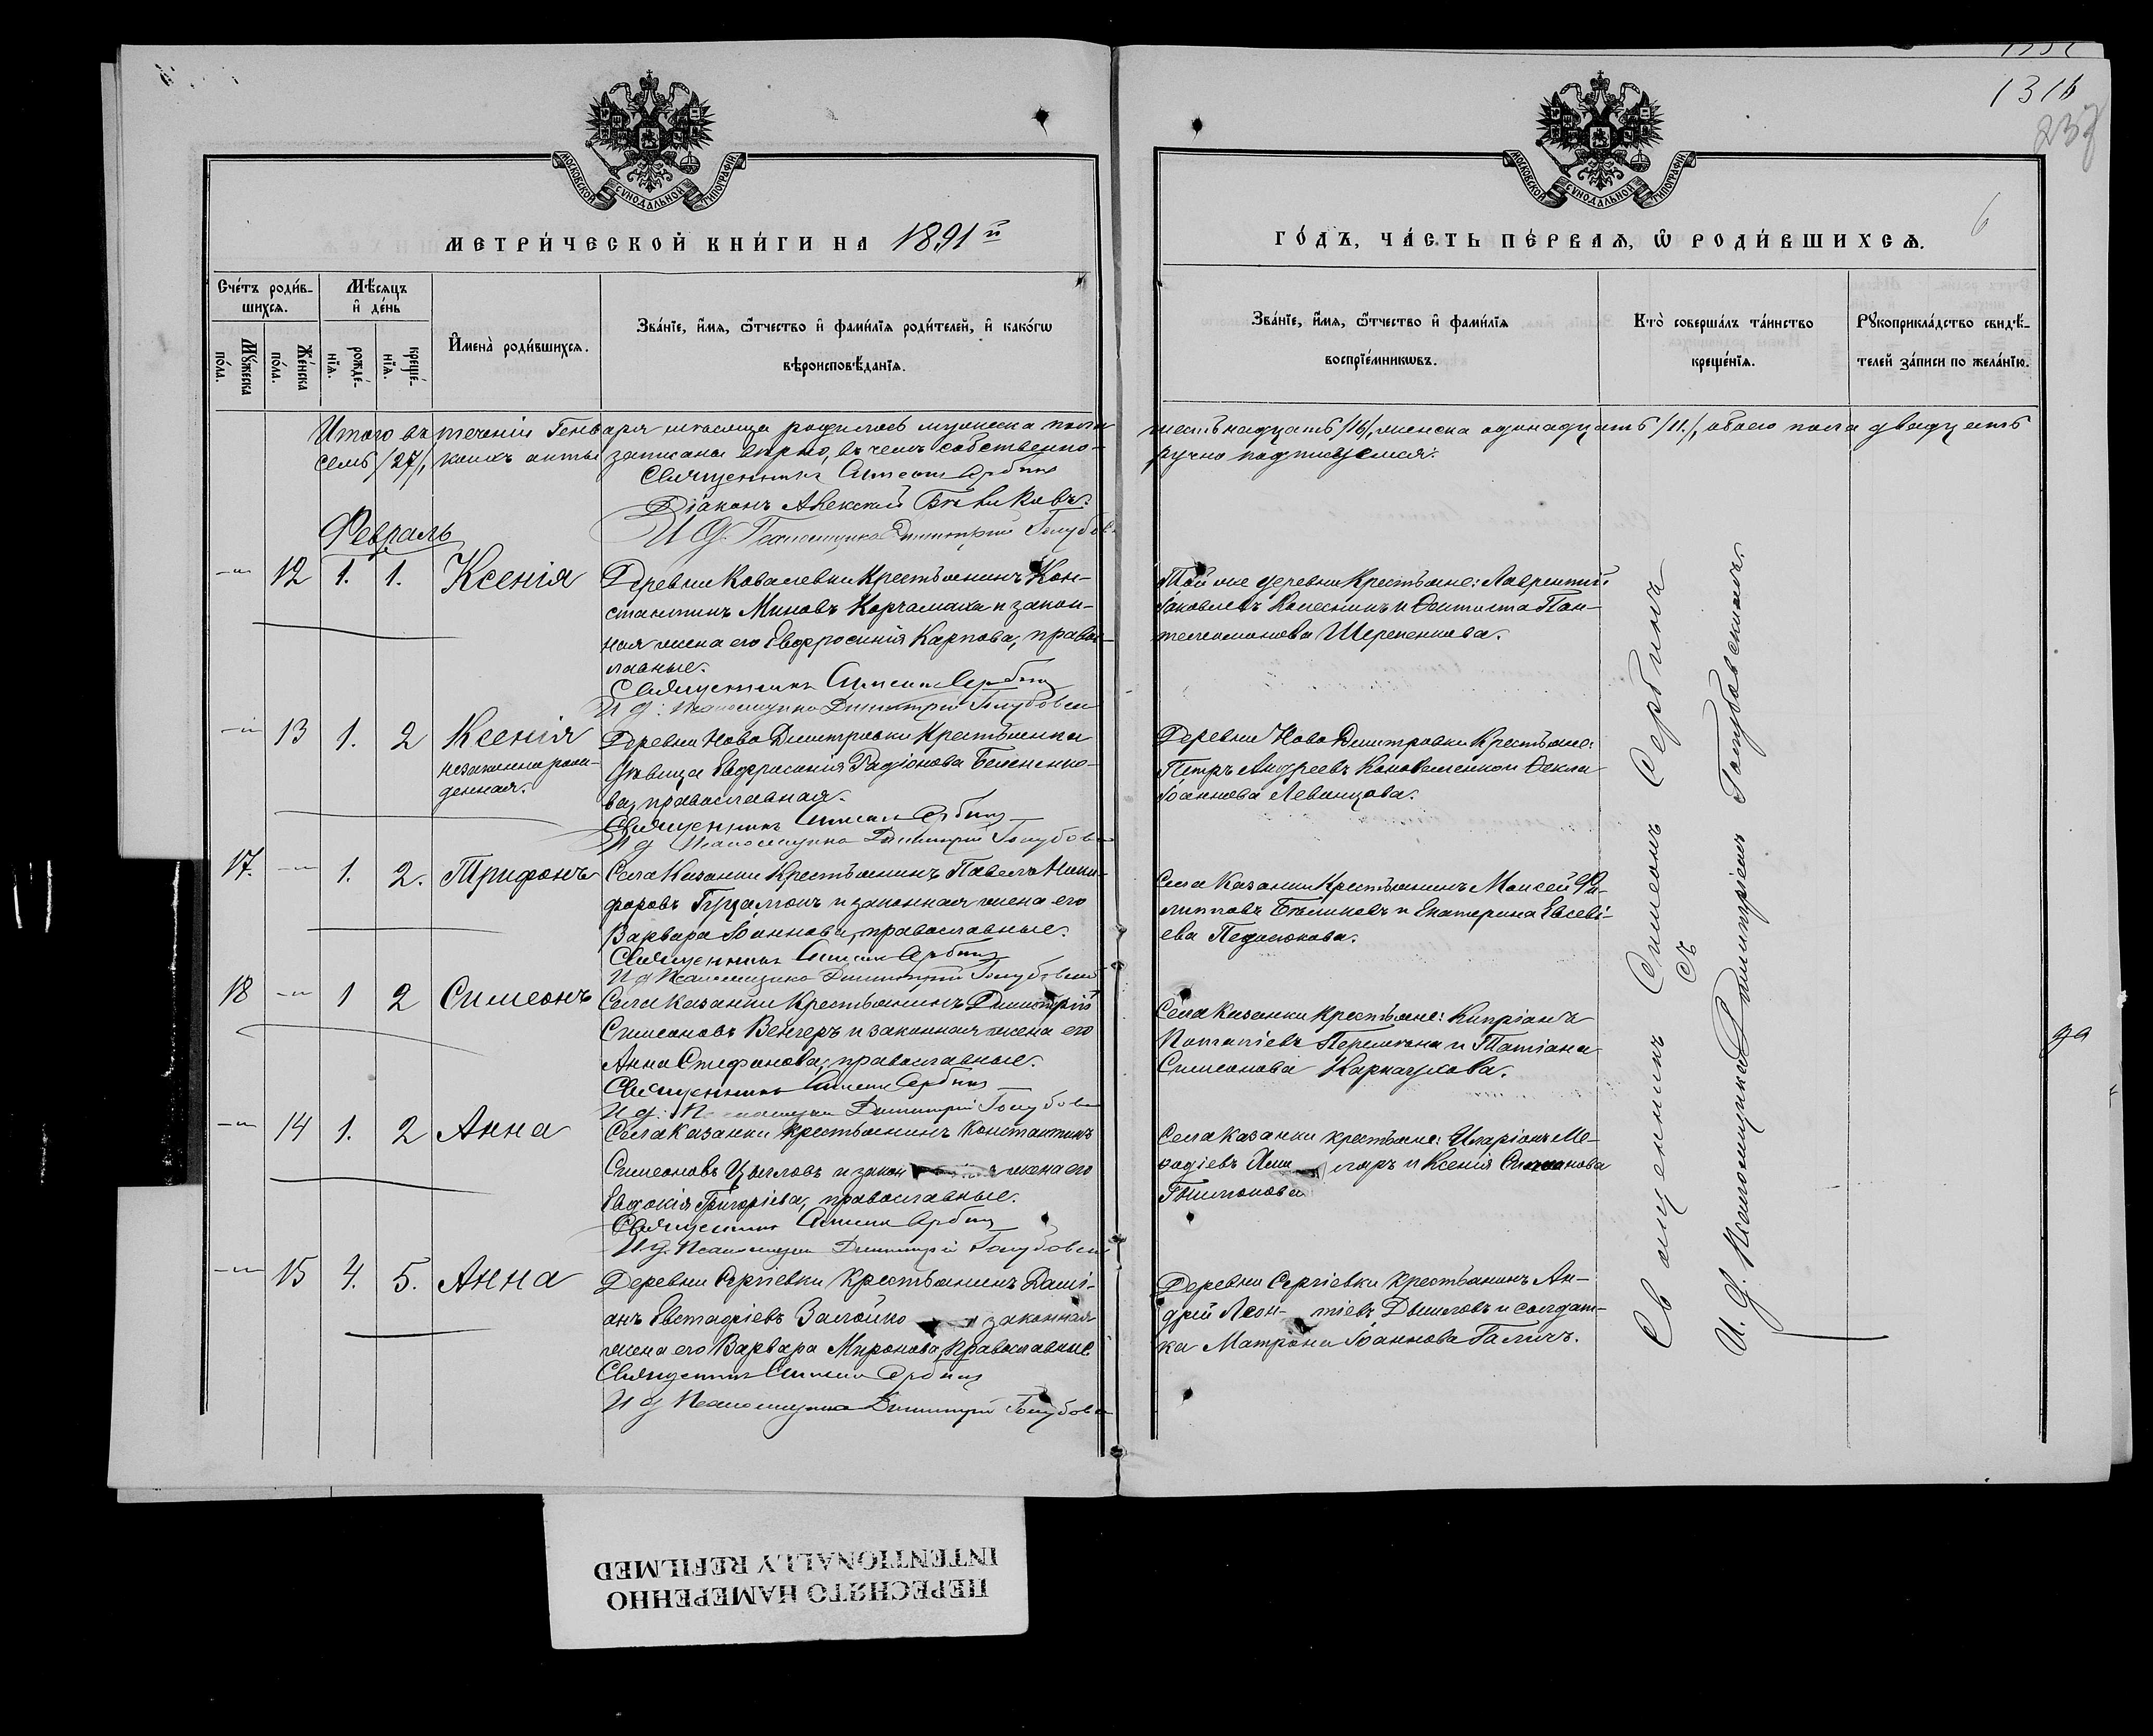 1316
237
6
МОСКОВСКОЙ СѴНОДАЛЬНОЙ ТИПОГРАФІИ
МОСКОВСКОЙ СѴНОДАЛЬНОЙ ТИПОГРАФІИ
МЕТРИ́ЧЕСКОЙ КНИ́ГИ НА 1891й
ГО́ДЪ, ЧА́СТЬ ПЕ́РВАѦ, Ѡ҆ РОДИ́ВШИХСѦ.
Сче́тъ роди́в-
шихсѧ.
Мѣ́сѧцъ
и҆ де́нь
Мꙋ́жеска по́ла.
Же́нска по́ла.
рожде́-нїѧ.
креще́-нїѧ.
И҆мена̀ роди́вшихсѧ.
Зва́нїе, и҆́мѧ, ѻ҆́тчество и҆ фами́лїѧ роди́телей, и҆ како́гѡ
вѣроисповѣ́данїѧ.
Зва́нїе, и҆́мѧ, ѻ҆́тчество и҆ фами́лїѧ
воспрїе́мникѡвъ.
Кто̀ соверша́лъ та́инство
креще́нїѧ.
Рꙋкоприкла́дство свидѣ́-
телей за́писи по жела́нїю.
Итого въ теченіи Генваря мѣсяца родилось мужеска пола шестьнадцать /16/, женска одинадцать /11/, обоего пола двадцать
семь /27/, коихъ акты записаны вѣрно, въ чемъ собственно-ручно подписуемся:
Священникъ Симеонъ Сербинъ
Діаконъ Алексѣй
И. д. Псаломщика Димитрій Голубов
Февраль
12 1. 1. Ксенія
Деревни Ковалевки Крестьянинъ Кон-
стантинъ Миновъ Корчамаха и закон-
ная жена его Евфросинія Карпова, правос-
лавные.
Священникъ Симеонъ Сербинъ
И д: Псаломщика Димитрій Голубовск
Той же деревни Крестьяне: Лаврентій
Іаковлевъ Колесникъ и Фектиста Пан-
телеимонова Шерепенкова.
13 1. 2 Ксенія
незаконнорож-
денная.
Деревни Ново Димитровки Крестьянка
дѣвица Евфросинія Радіонова
ва, православная.
Священникъ Симеонъ Сербинъ
И д Псаломщика Димитрій Голубовс
Деревни Ново Димитровки Крестьяне:
Петръ Андреевъ Коноваленко и Фекла
Іоаннова Леванцова.
17. 1. 2. Трифонъ
Села Казанки Крестьянинъ Павелъ Ники-
форовъ и законная жена его
Варвара Іоаннова, православные.
Священникъ Симеонъ Сербинъ
И д Псаломщика Димитрій Голубовск
Села Казанки Крестьянинъ Моисей Фи-
липповъ Бѣликовъ и Екатерина Евсеві-
ева Педасюкова.
18 1 2 Симеонъ
Села Казанки Крестьянинъ Димитрій
Симеоновъ Венгеръ и законная жена его
Анна Стефанова, православные.
Священникъ Симеонъ Сербинъ
И д: Псаломщика Димитрій Голубовс
Села Казанки Крестьяне: Кипріанъ
Потапіевъ и Татіана
Симеонова Карнаухова.
14 1. 2 Анна
Села Казанки крестьянинъ Константинъ
Симеоновъ и закон жена его
Евдокія Григоріева, православные.
Священникъ Симеонъ Сербинъ
И д. Псаломщика Димитрій Голубовск
Села Казанки крестьяне: Иларіонъ Ме-
ѳодіевъ и Ксенія Симеонова
15 4. 5. Анна
Деревни Сергіевки Крестьянинъ Дамі-
анъ Евстафіевъ законная
жена его Варвара Миронова, православные
Священникъ Симеонъ Сербинъ
И д Псаломщика Димитрій Голубовс
Деревни Сергіевки крестьянинъ Ан-
дрій Леон-тіевъ и солдат-
ка Матрона Іоаннова Галичъ.
Священникъ Симеонъ Сербинъ
съ
И. д. Псаломщика Димитріемъ Голубовскимъ.
ПЕРЕСНЯТО НАМЕРЕННО
INTENTIONALLY REFILMED